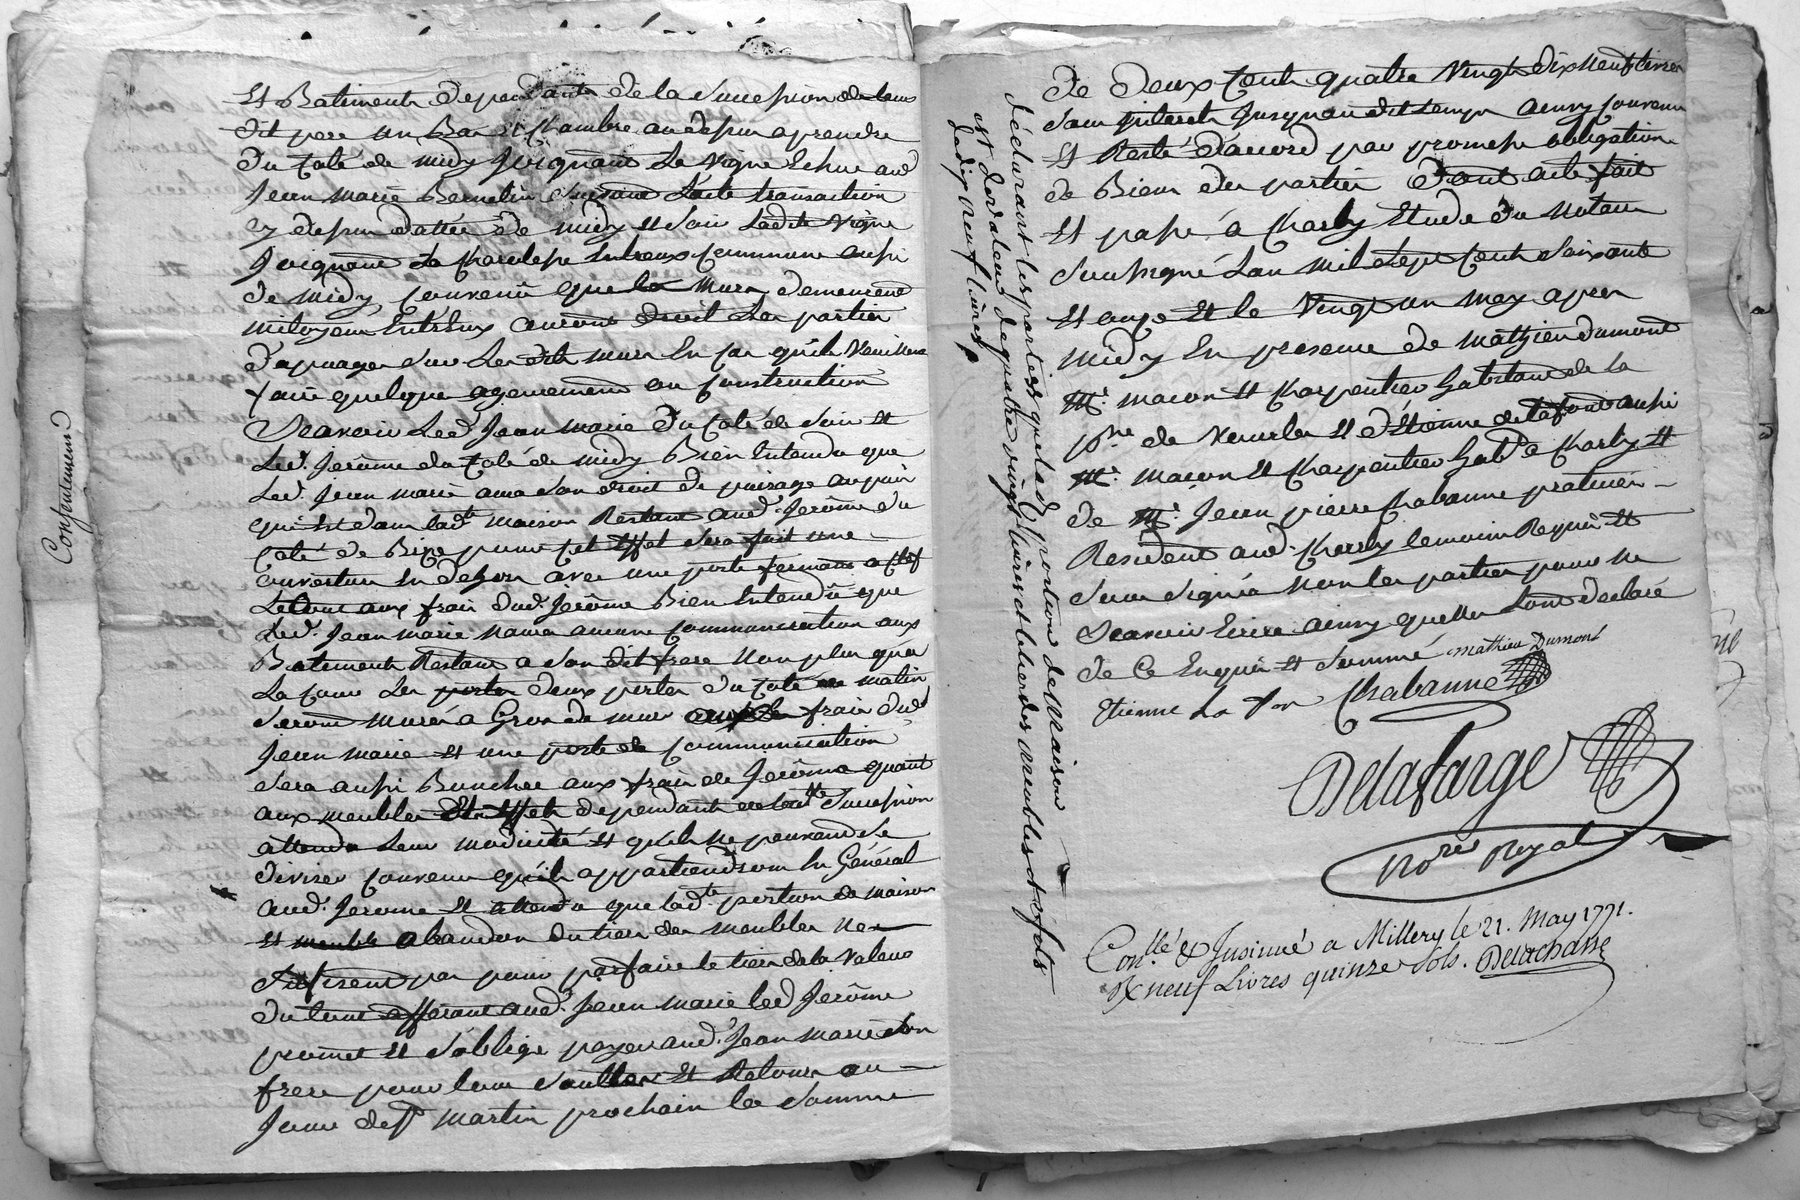 Confentement
et Batiments dependants de la Succession de leur
dit pere un Bas et Chambre au dessus a prendre
du Coté de midy Joignant la vigne Echue aud
Jean Marie Bernelin suivant l'acte transaction
cy dessus dattée de midy et soir ladite vigne
Joignant la Charclesse entreux Commune aussi
de midy, Convenu que les murs demeureront
mitoyens Entr'Eux auront droit les parties
d'apuayer sur lesdits murs En Cas qu'ils veuillent
faire quelque agencement ou Construction
Scavoir led. Jean Marie du Coté de soir et
led. Jerôme du Coté de midy Bien Entendu que
led. Jean Marie aura son droit de puisage au puis
qui est dans ladte. maison Restant aud. Jerôme du
Coté de Bize pour Cet Effet sera fait une
ouverture en dehors avec une porte fermant a Clef
Le tout aux frais dud. Jerôme Bien Entendu que
led. Jean Marie n'aura aucune Communication aux
Batiments Restant a son dit frere non plus qu'a
la Cour les deux portes du Coté de matin
seront murés a Gros de mur aux frais dud.
Jean Marie et une porte de Communication
sera aussi Bouchée aux frais de Jerôme quant
aux meubles et Effets dependants de lad.te Succession
attendu leur modicité et qu'ils ne peuvent se
diviser Convenu qu'ils appartiendront En Général
aud. Jerome et attendu que lad.te portion de maison
et meuble abandon du tiers des meubles ne
suffisent pas pour parfaire le tiers de la valeur
du tout afférant aud. Jean Marie led Jerôme
promet et s'oblige payer aud. Jean Marie son
frere pour leur soulte et Retour au
Jour de St Martin prochain la Somme
déclarant les parties que lad. portion de maison
est de valeur de quatre vingt livres et celui des meubles et effets
de dix neuf livres
De Deux Cent quatre Vingt dix Neuf livres
sans Interets Jusqu'au dit temps ainsy Convenu
et Resté d'acord par promesse obligation
de Biens des parties Dont acte fait
et passé a Charly Etude du Notaire
soussigné L'an mil sept Cent soixante
et onze et le Vingt un may apres
midy En presence de Mathieu dumont
Me. macon et Charpentier habitant de la
psse de Vourles et d'Etienne delafond aussi
Me. macon et Charpentier habt. de Charly et
de Me. Jean pierre Chabanne praticien
Resident aud. Charly temoins Requis et
sous signés non les parties pour ne
Scavoir Ecrire ainsy qu'elles l'ont declaré
de Ce Enquis et sommé mathieu Dumont
Etienne La fon Chabanne
Delafarge
No.re Royal
Con.llé & Insinué a Millery le 21. May 1771.
Rx neuf Livres quinze Sols. Delachasse